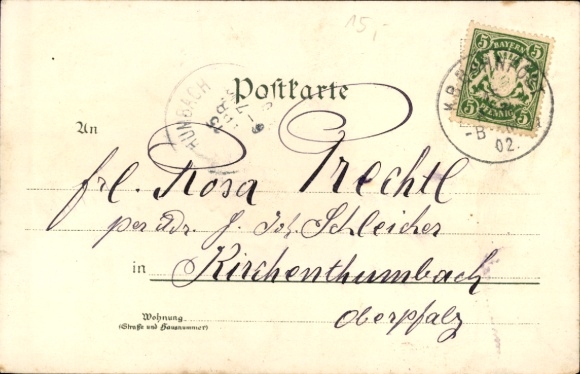 15,-
5 BAYERN 5
5 PFENNIG 5
K.B.
-B-
02.
HUMBACH
Postkarte
An
frl. Rosa Trechtl
per Adr. J. Joh. Schleicher
in Kirchenthumbach
Oberpfalz
Wohnung
(Straße und Hausnummer)